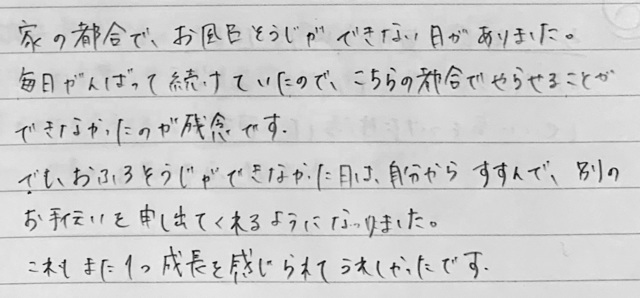 家の都合で、お風呂そうじができない日がありました。
毎日がんばって続けていたので、こちらの都合でやらせることが
できなかったのが残念です。
でも、おふろそうじができなかった日は、自分からすすんで、別の
お手伝いを申し出てくれるようになりました。
これもまた1つ成長を感じられてうれしかったです。